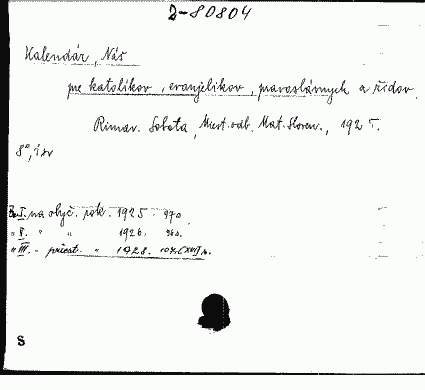 J-80804
Kalendár, Náš
pre katolíkov, evanjelikov, pravoslávnych a židov.
Rimav. Sobota, Miest. odb. Mat. Sloven., 192
8°, 1 sv
I. na obyč. rok. 1925. 97 s.
" II. " " 1926. 96 s.
" III. " priest. " 1928.
S